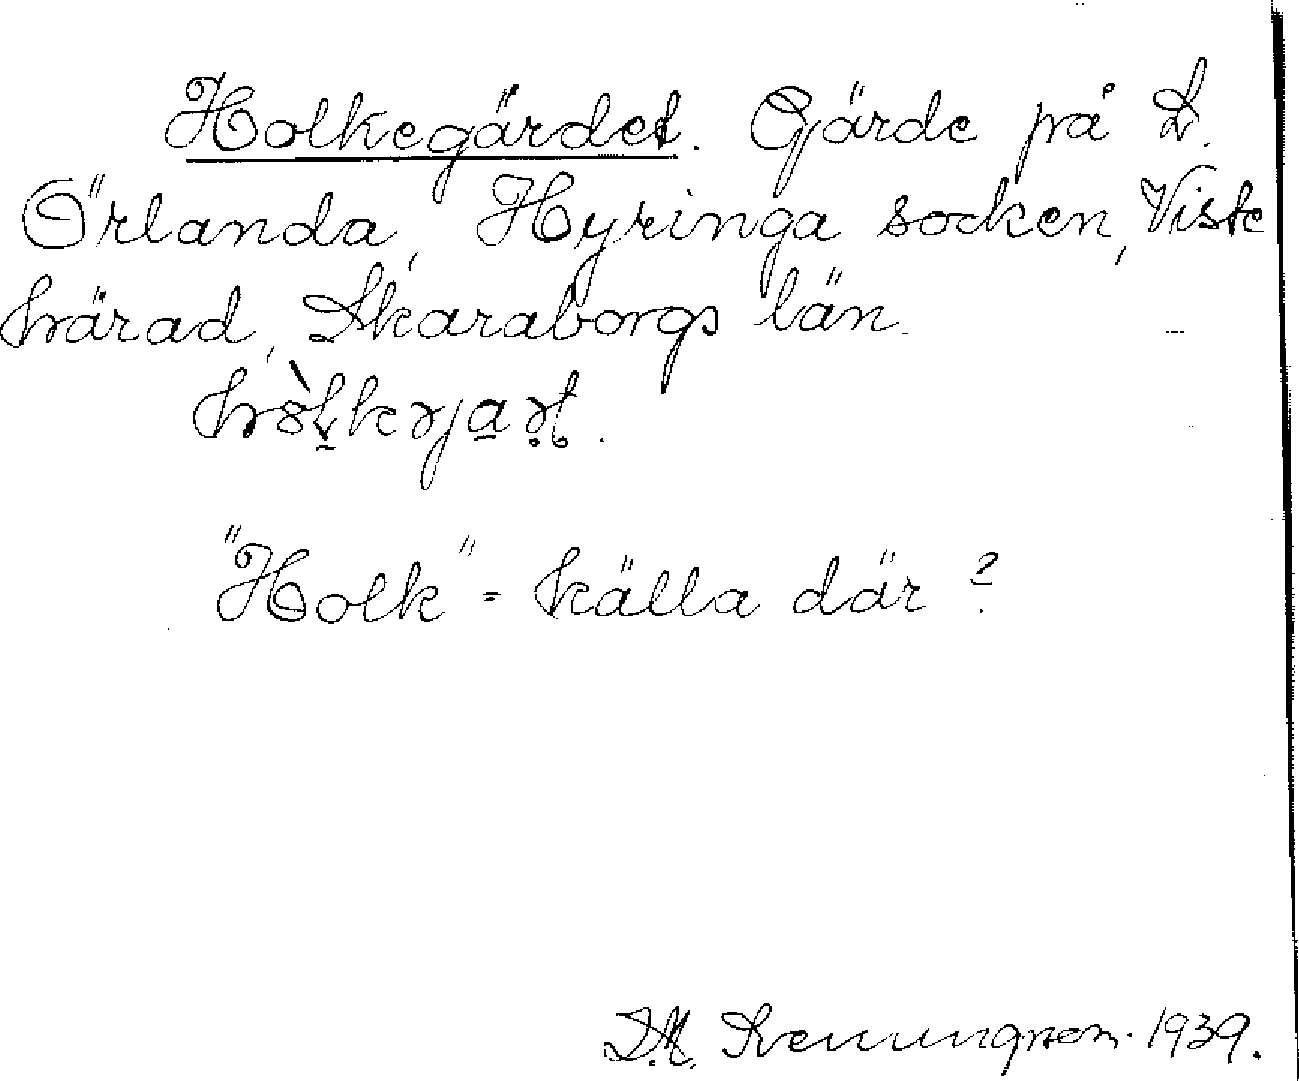 Holkegärdet. Gärde på L.
Örlanda, Hyringa socken, Viste
härad, Skaraborgs län.
"Holk" - källa där?
Svenungsson. 1939.